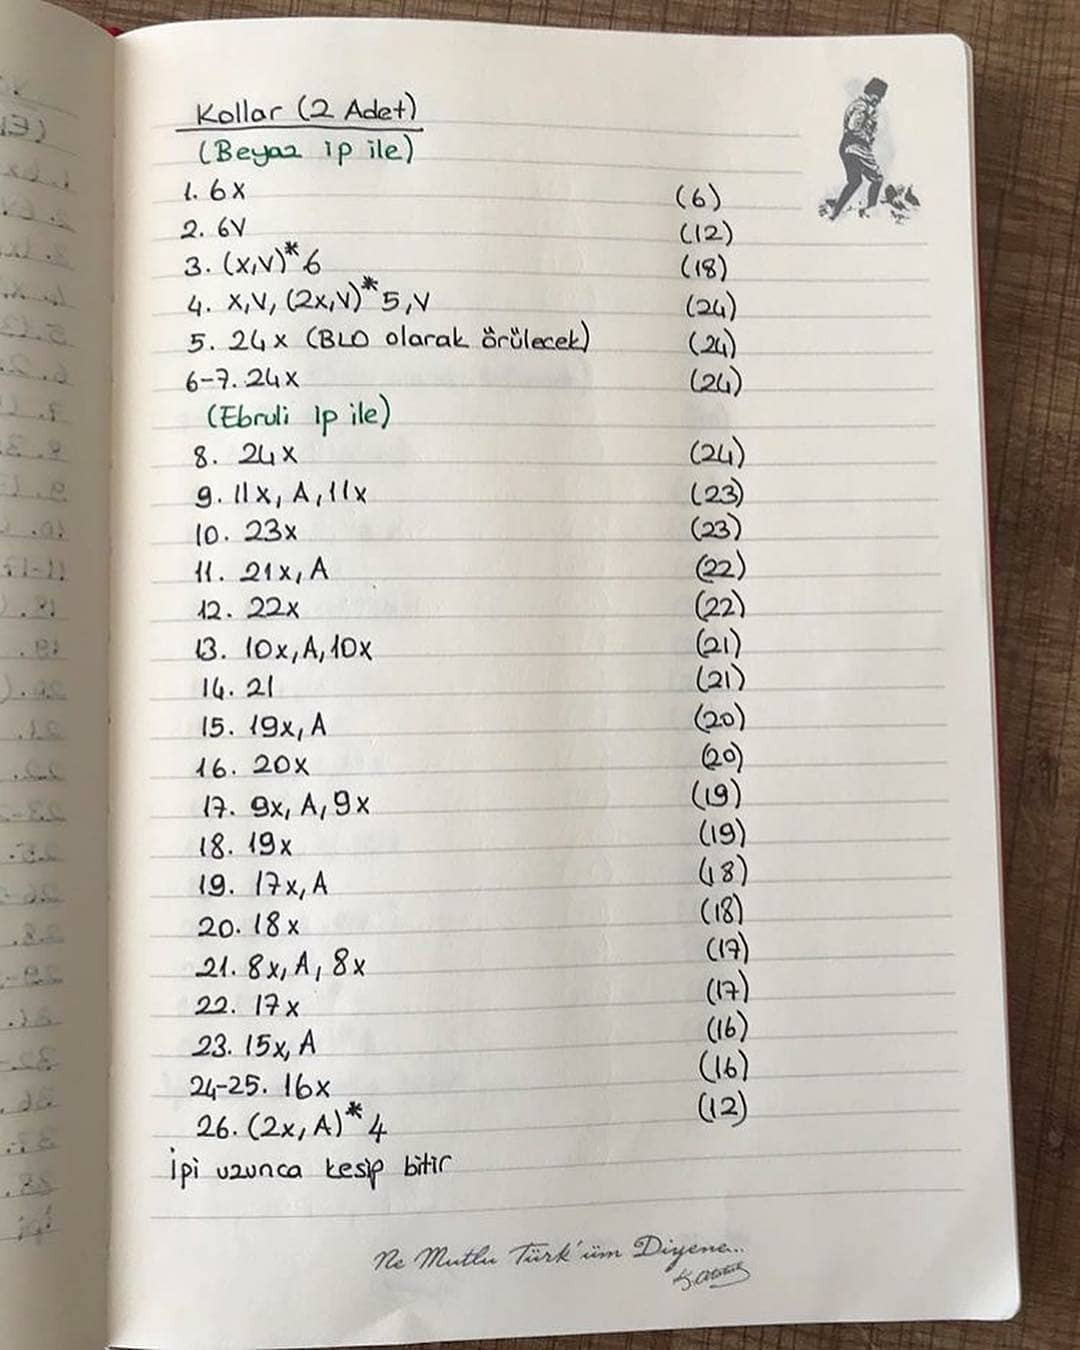 Kollar (2 Adet)
(Beyaz ip ile)
1. 6x (6)
2. 6V (12)
3. (x,V)*6 (18)
4. x,V, (2x,V)*5,V (24)
5. 24x (BLO olarak örülecek) (24)
6-7. 24x (24)
(Ebruli ip ile)
8. 24x (24)
9. 11x, A, 11x (23)
10. 23x (23)
11. 21x, A (22)
12. 22x (22)
13. 10x, A, 10x (21)
14. 21 (21)
15. 19x, A (20)
16. 20x (20)
17. 9x, A, 9x (19)
18. 19x (19)
19. 17x, A (18)
20. 18x (18)
21. 8x, A, 8x (17)
22. 17x (17)
23. 15x, A (16)
24-25. 16x (16)
26. (2x, A)*4 (12)
İpi uzunca kesip bitir
Ne Mutlu Türk'üm Diyene...
K. Atatürk